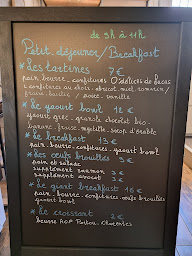 de 9h à 11h
Petit déjeuner/Breakfast
* Les tartines 7€
pain, beurre, confitures
2 confitures au choix: abricot, miel, romarin/
fraise, basilic / poire, vanille
* Le yaourt bowl 12€
yaourt grec, granola chocolat bio,
banane, fruits, myrtille, sirop d'érable
pain, beurre, confitures, yaourt bowl
* Les œufs brouillés 9€
pain et salade
supplément saumon 3€
supplément avocat 3€
* Le giant breakfast 16€
pain, beurre, confitures, œufs brouillés
yaourt bowl
* Le croissant 2€
beurre AOP Poitou, Charentes